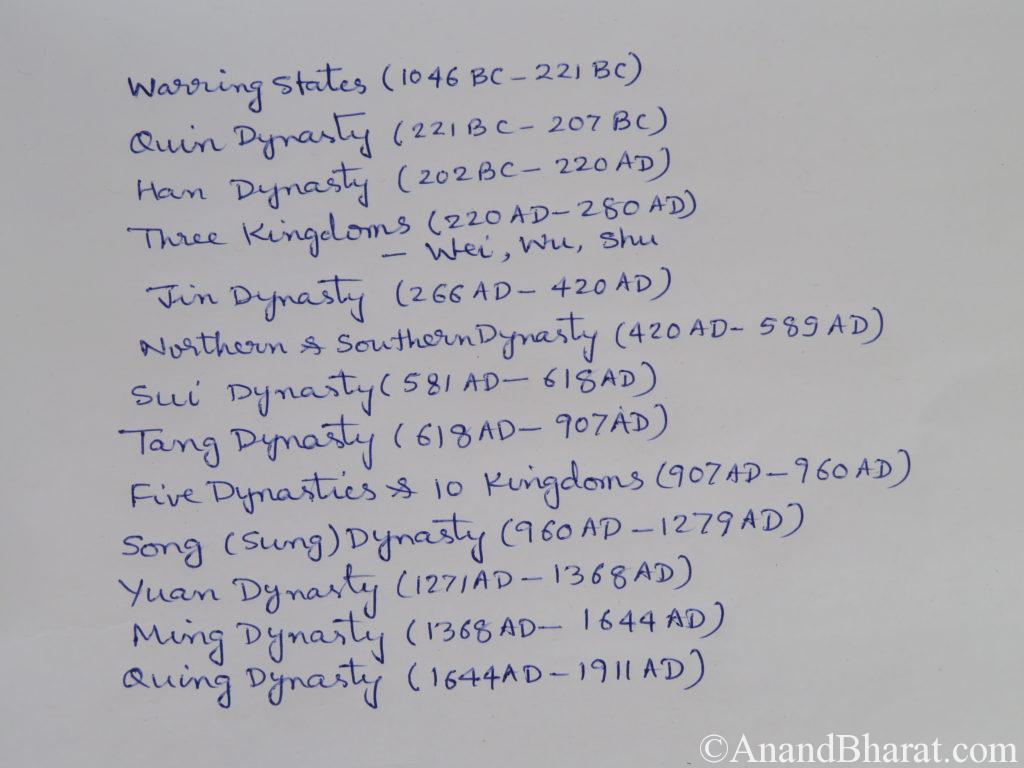 Warring States (1046 BC - 221 BC)
Quin Dynasty (221 BC - 207 BC)
Han Dynasty (202 BC - 220 AD)
Three Kingdoms (220 AD - 280 AD)
- Wei, Wu, Shu
Jin Dynasty (266 AD - 420 AD)
Northern & Southern Dynasty (420 AD - 589 AD)
Sui Dynasty (581 AD - 618 AD)
Tang Dynasty (618 AD - 907 AD)
Five Dynasties & 10 Kingdoms (907 AD - 960 AD)
Song (Sung) Dynasty (960 AD - 1279 AD)
Yuan Dynasty (1271 AD - 1368 AD)
Ming Dynasty (1368 AD - 1644 AD)
Quing Dynasty (1644 AD - 1911 AD)
©AnandBharat.com